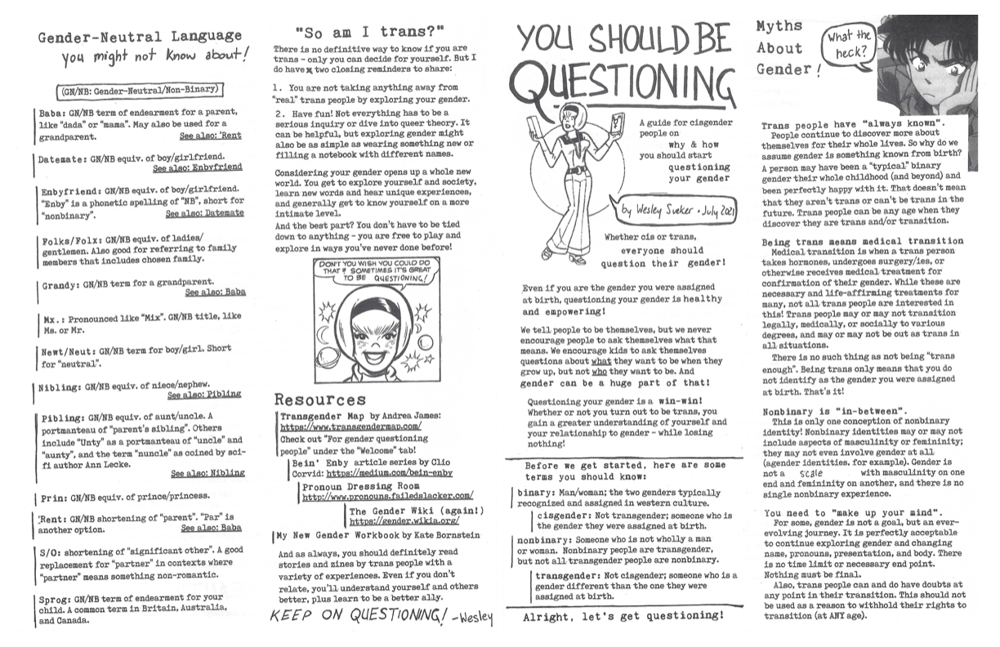 Gender-Neutral Language
you might not know about!
(GN/NB: Gender-Neutral/Non-Binary)
Baba: GN/NB term of endearment for a parent,
like "dada" or "mama". May also be used for a
grandparent.
See also: 'Rent
Datemate: GN/NB equiv. of boy/girlfriend.
See also: Enbyfriend
Enbyfriend: GN/NB equiv. of boy/girlfriend.
"Enby" is a phonetic spelling of "NB", short for
"nonbinary".
See also: Datemate
Folks/Folx: GN/NB equiv. of ladies/
gentlemen. Also good for referring to family
members that includes chosen family.
Grandy: GN/NB term for a grandparent.
See also: Baba
Mx.: Pronounced like "Mix". GN/NB title, like
Ms. or Mr.
Newt/Neut: GN/NB term for boy/girl. Short
for "neutral".
Nibling: GN/NB equiv. of niece/nephew.
See also: Pibling
Pibling: GN/NB equiv. of aunt/uncle. A
portmanteau of "parent's sibling". Others
include "Unty" as a portmanteau of "uncle" and
"aunty", and the term "nuncle" as coined by sci-
fi author Ann Lecke.
See also: Nibling
Prin: GN/NB equiv. of prince/princess.
'Rent: GN/NB shortening of "parent". "Par" is
another option.
See also: Baba
S/O: shortening of "significant other". A good
replacement for "partner" in contexts where
"partner" means something non-romantic.
Sprog: GN/NB term of endearment for your
child. A common term in Britain, Australia,
and Canada.
"So am I trans?"
There is no definitive way to know if you are
trans - only you can decide for yourself. But I
do have two closing reminders to share:
1. You are not taking anything away from
"real" trans people by exploring your gender.
2. Have fun! Not everything has to be a
serious inquiry or dive into queer theory. It
can be helpful, but exploring gender might
also be as simple as wearing something new or
filling a notebook with different names.
Considering your gender opens up a whole new
world. You get to explore yourself and society,
learn new words and hear unique experiences,
and generally get to know yourself on a more
intimate level.
And the best part? You don't have to be tied
down to anything - you are free to play and
explore in ways you've never done before!
DON'T YOU WISH YOU COULD DO
THAT? SOMETIMES IT'S GREAT
TO BE QUESTIONING!
Resources
Transgender Map by Andrea James:
https://www.transgendermap.com/
Check out "For gender questioning
people" under the "Welcome" tab!
Bein' Enby article series by Clio
Corvid: https://medium.com/bein-enby
Pronoun Dressing Room
http://www.pronouns.failedslacker.com/
The Gender Wiki (again!)
https://gender.wikia.org/
My New Gender Workbook by Kate Bornstein
And as always, you should definitely read
stories and zines by trans people with a
variety of experiences. Even if you don't
relate, you'll understand yourself and others
better, plus learn to be a better ally.
KEEP ON QUESTIONING! -Wesley
YOU SHOULD BE
QUESTIONING
A guide for cisgender
people on
why & how
you should start
questioning
your gender
by Wesley Sueker • July 2021
Whether cis or trans,
everyone should
question their gender!
Even if you are the gender you were assigned
at birth, questioning your gender is healthy
and empowering!
We tell people to be themselves, but we never
encourage people to ask themselves what that
means. We encourage kids to ask themselves
questions about what they want to be when they
grow up, but not who they want to be. And
gender can be a huge part of that!
Questioning your gender is a win-win!
Whether or not you turn out to be trans, you
gain a greater understanding of yourself and
your relationship to gender - while losing
nothing!
Before we get started, here are some
terms you should know:
binary: Man/woman; the two genders typically
recognized and assigned in western culture.
cisgender: Not transgender; someone who is
the gender they were assigned at birth.
nonbinary: Someone who is not wholly a man
or woman. Nonbinary people are transgender,
but not all transgender people are nonbinary.
transgender: Not cisgender; someone who is a
gender different than the one they were
assigned at birth.
Alright, let's get questioning!
Myths
About
Gender!
What the
heck?
Trans people have "always known".
People continue to discover more about
themselves for their whole lives. So why do we
assume gender is something known from birth?
A person may have been a "typical" binary
gender their whole childhood (and beyond) and
been perfectly happy with it. That doesn't mean
that they aren't trans or can't be trans in the
future. Trans people can be any age when they
discover they are trans and/or transition.
Being trans means medical transition
Medical transition is when a trans person
takes hormones, undergoes surgery/ies, or
otherwise receives medical treatment for
confirmation of their gender. While these are
necessary and life-affirming treatments for
many, not all trans people are interested in
this! Trans people may or may not transition
legally, medically, or socially to various
degrees, and may or may not be out as trans in
all situations.
There is no such thing as not being "trans
enough". Being trans only means that you do
not identify as the gender you were assigned
at birth. That's it!
Nonbinary is "in-between".
This is only one conception of nonbinary
identity! Nonbinary identities may or may not
include aspects of masculinity or femininity;
they may not even involve gender at all
(agender identities, for example). Gender is
not a scale with masculinity on one
end and femininity on another, and there is no
single nonbinary experience.
You need to "make up your mind".
For some, gender is not a goal, but an ever-
evolving journey. It is perfectly acceptable
to continue exploring gender and changing
name, pronouns, presentation, and body. There
is no time limit or necessary end point.
Nothing must be final.
Also, trans people can and do have doubts at
any point in their transition. This should not
be used as a reason to withhold their rights to
transition (at ANY age).